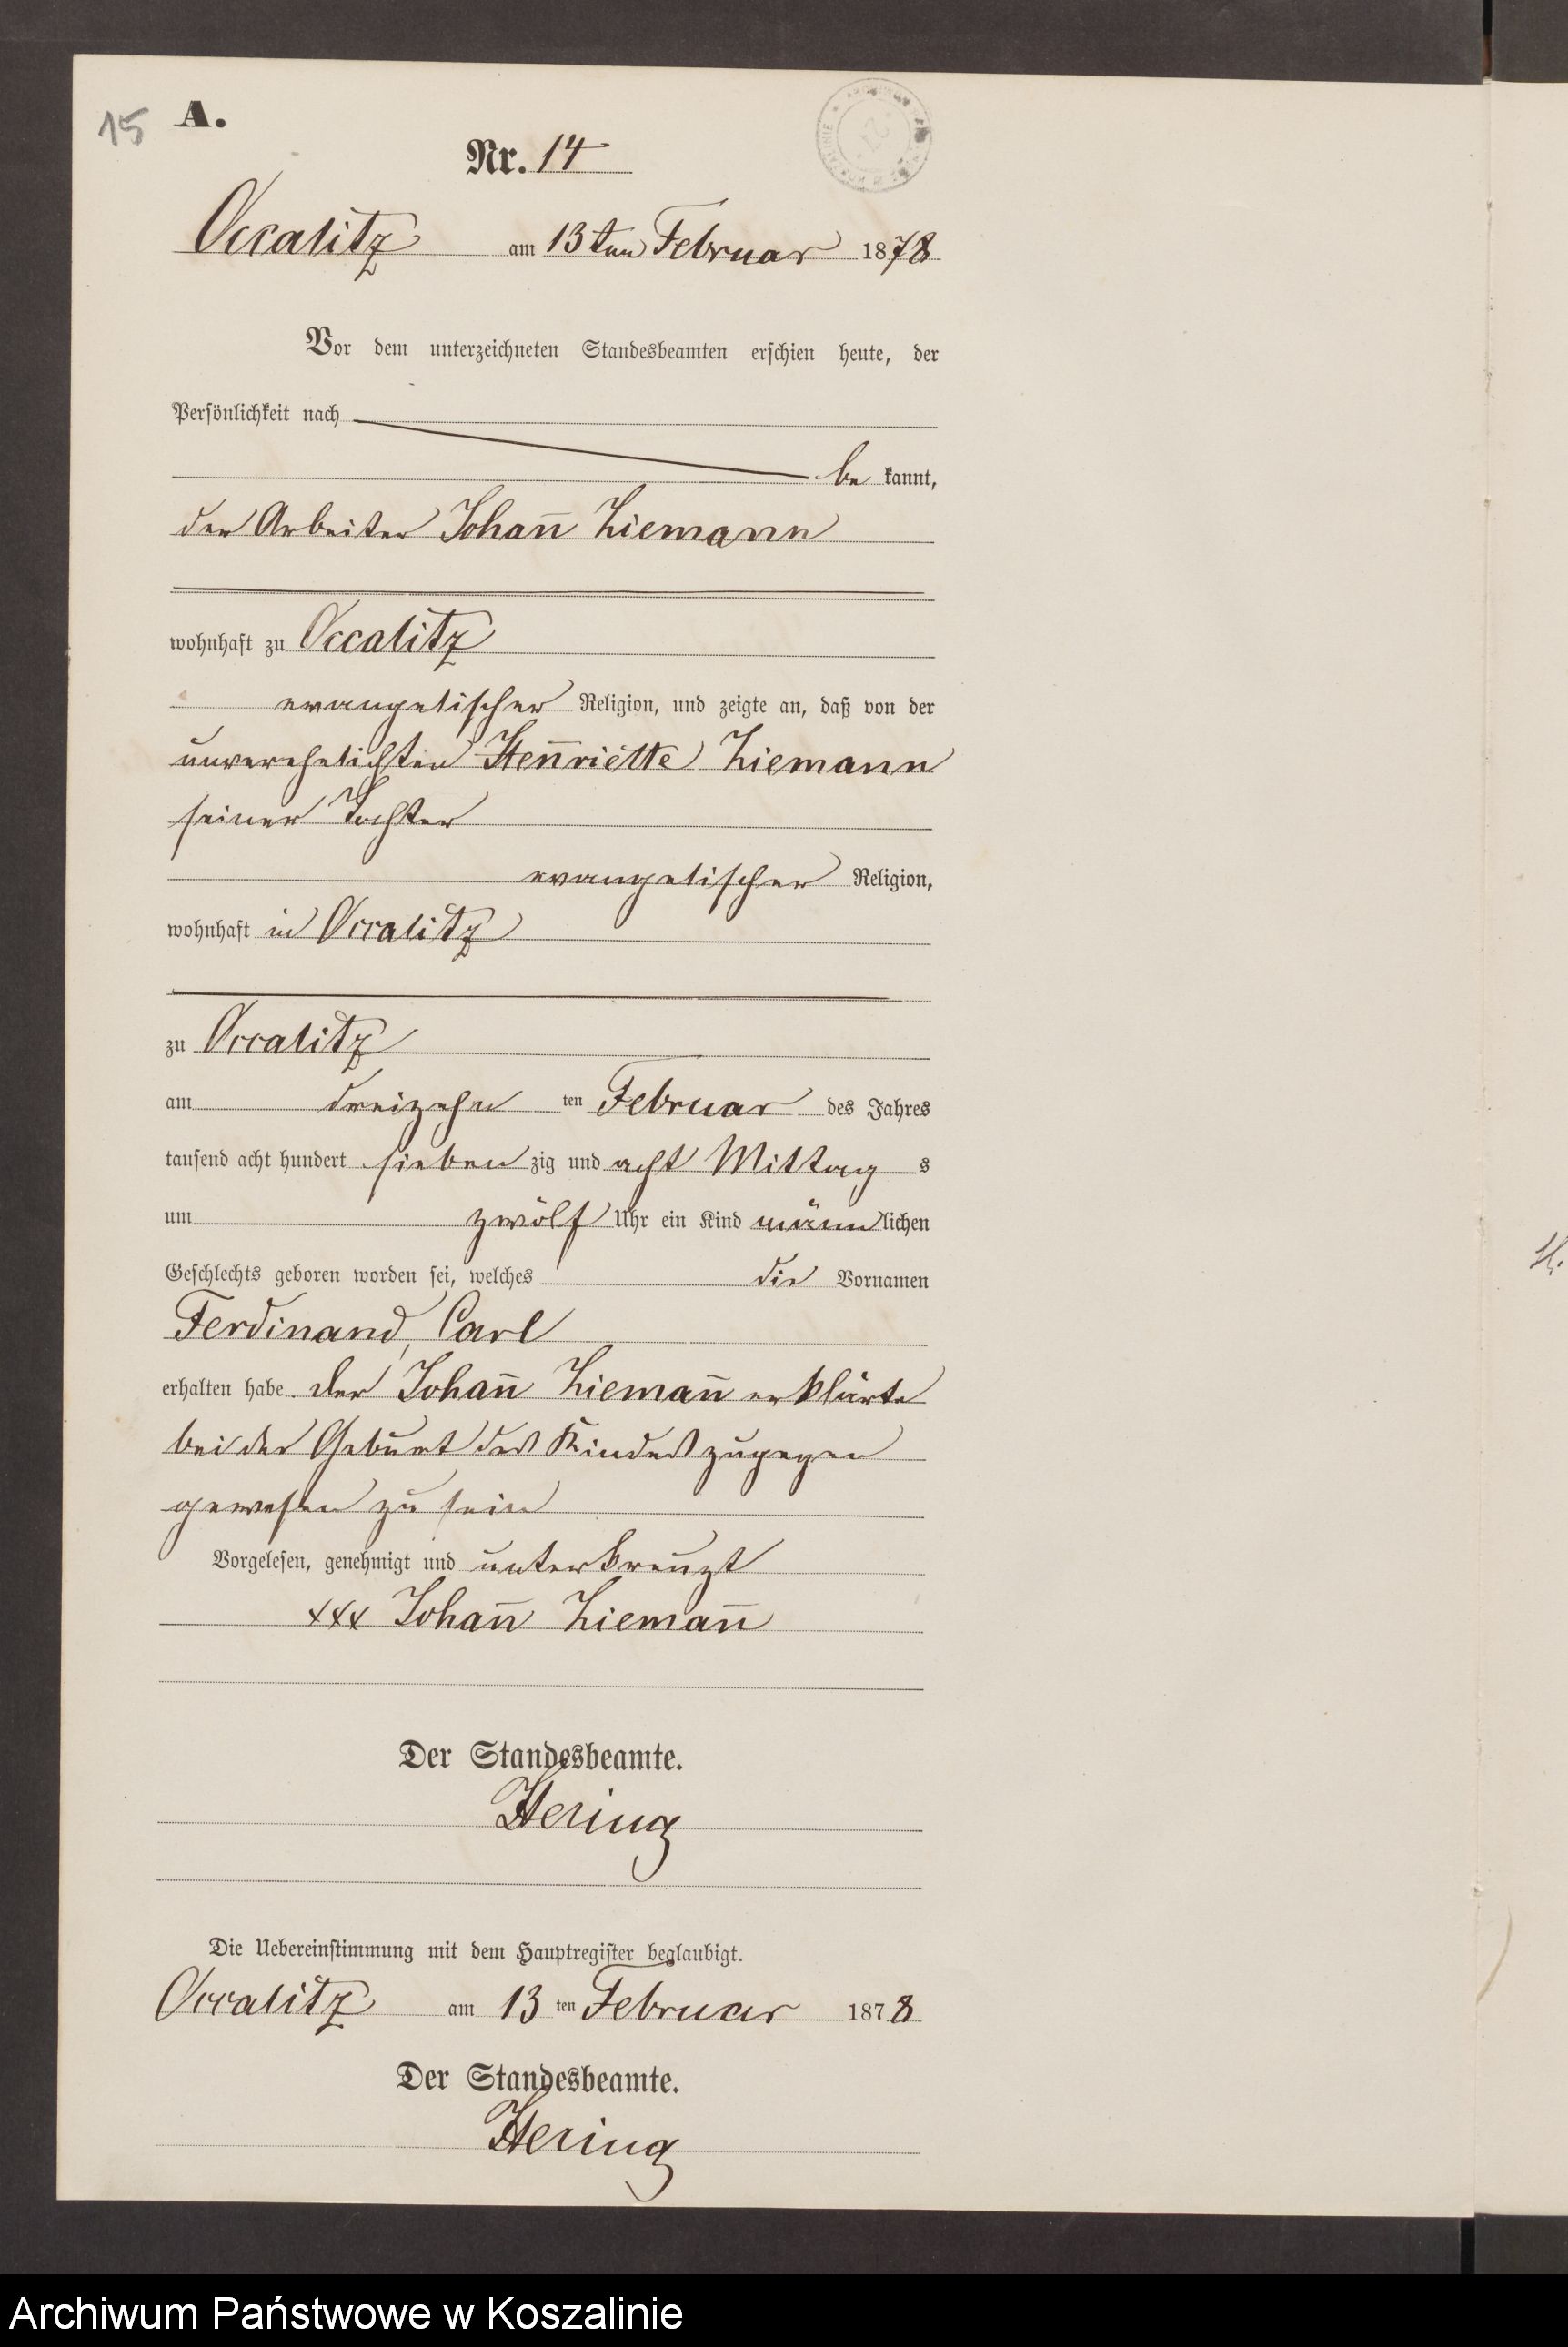 15 A.
Nr. 14
Occalitz am 13ten Februar 1878
Vor dem unterzeichneten Standesbeamten erschien heute, der
Persönlichkeit nach
be kannt,
der Arbeiter Johan̅ Ziemann
wohnhaft zu Occalitz
evangelischer Religion, und zeigte an, daß von der
unverehelichten Hen̅riette Ziemann
seiner Tochter
evangelischer Religion,
wohnhaft in Occalitz
zu Occalitz
am dreizehn ten Februar des Jahres
tausend acht hundert sieben zig und acht Mittag s
um zwölf Uhr ein Kind männlichen
Geschlechts geboren worden sei, welches die Vornamen
Ferdinand, Carl
erhalten habe der Johan̅ Zieman̅ erklärte
bei der Geburt des Kindes zugegen
gewesen zu sein
Vorgelesen, genehmigt und unterkreuzt
xxx Johan̅ Zieman̅
Der Standesbeamte.
Hering
Die Uebereinstimmung mit dem Hauptregister beglaubigt.
Occalitz am 13 ten Februar 1878
Der Standesbeamte.
Hering
Archiwum Państwowe w Koszalinie